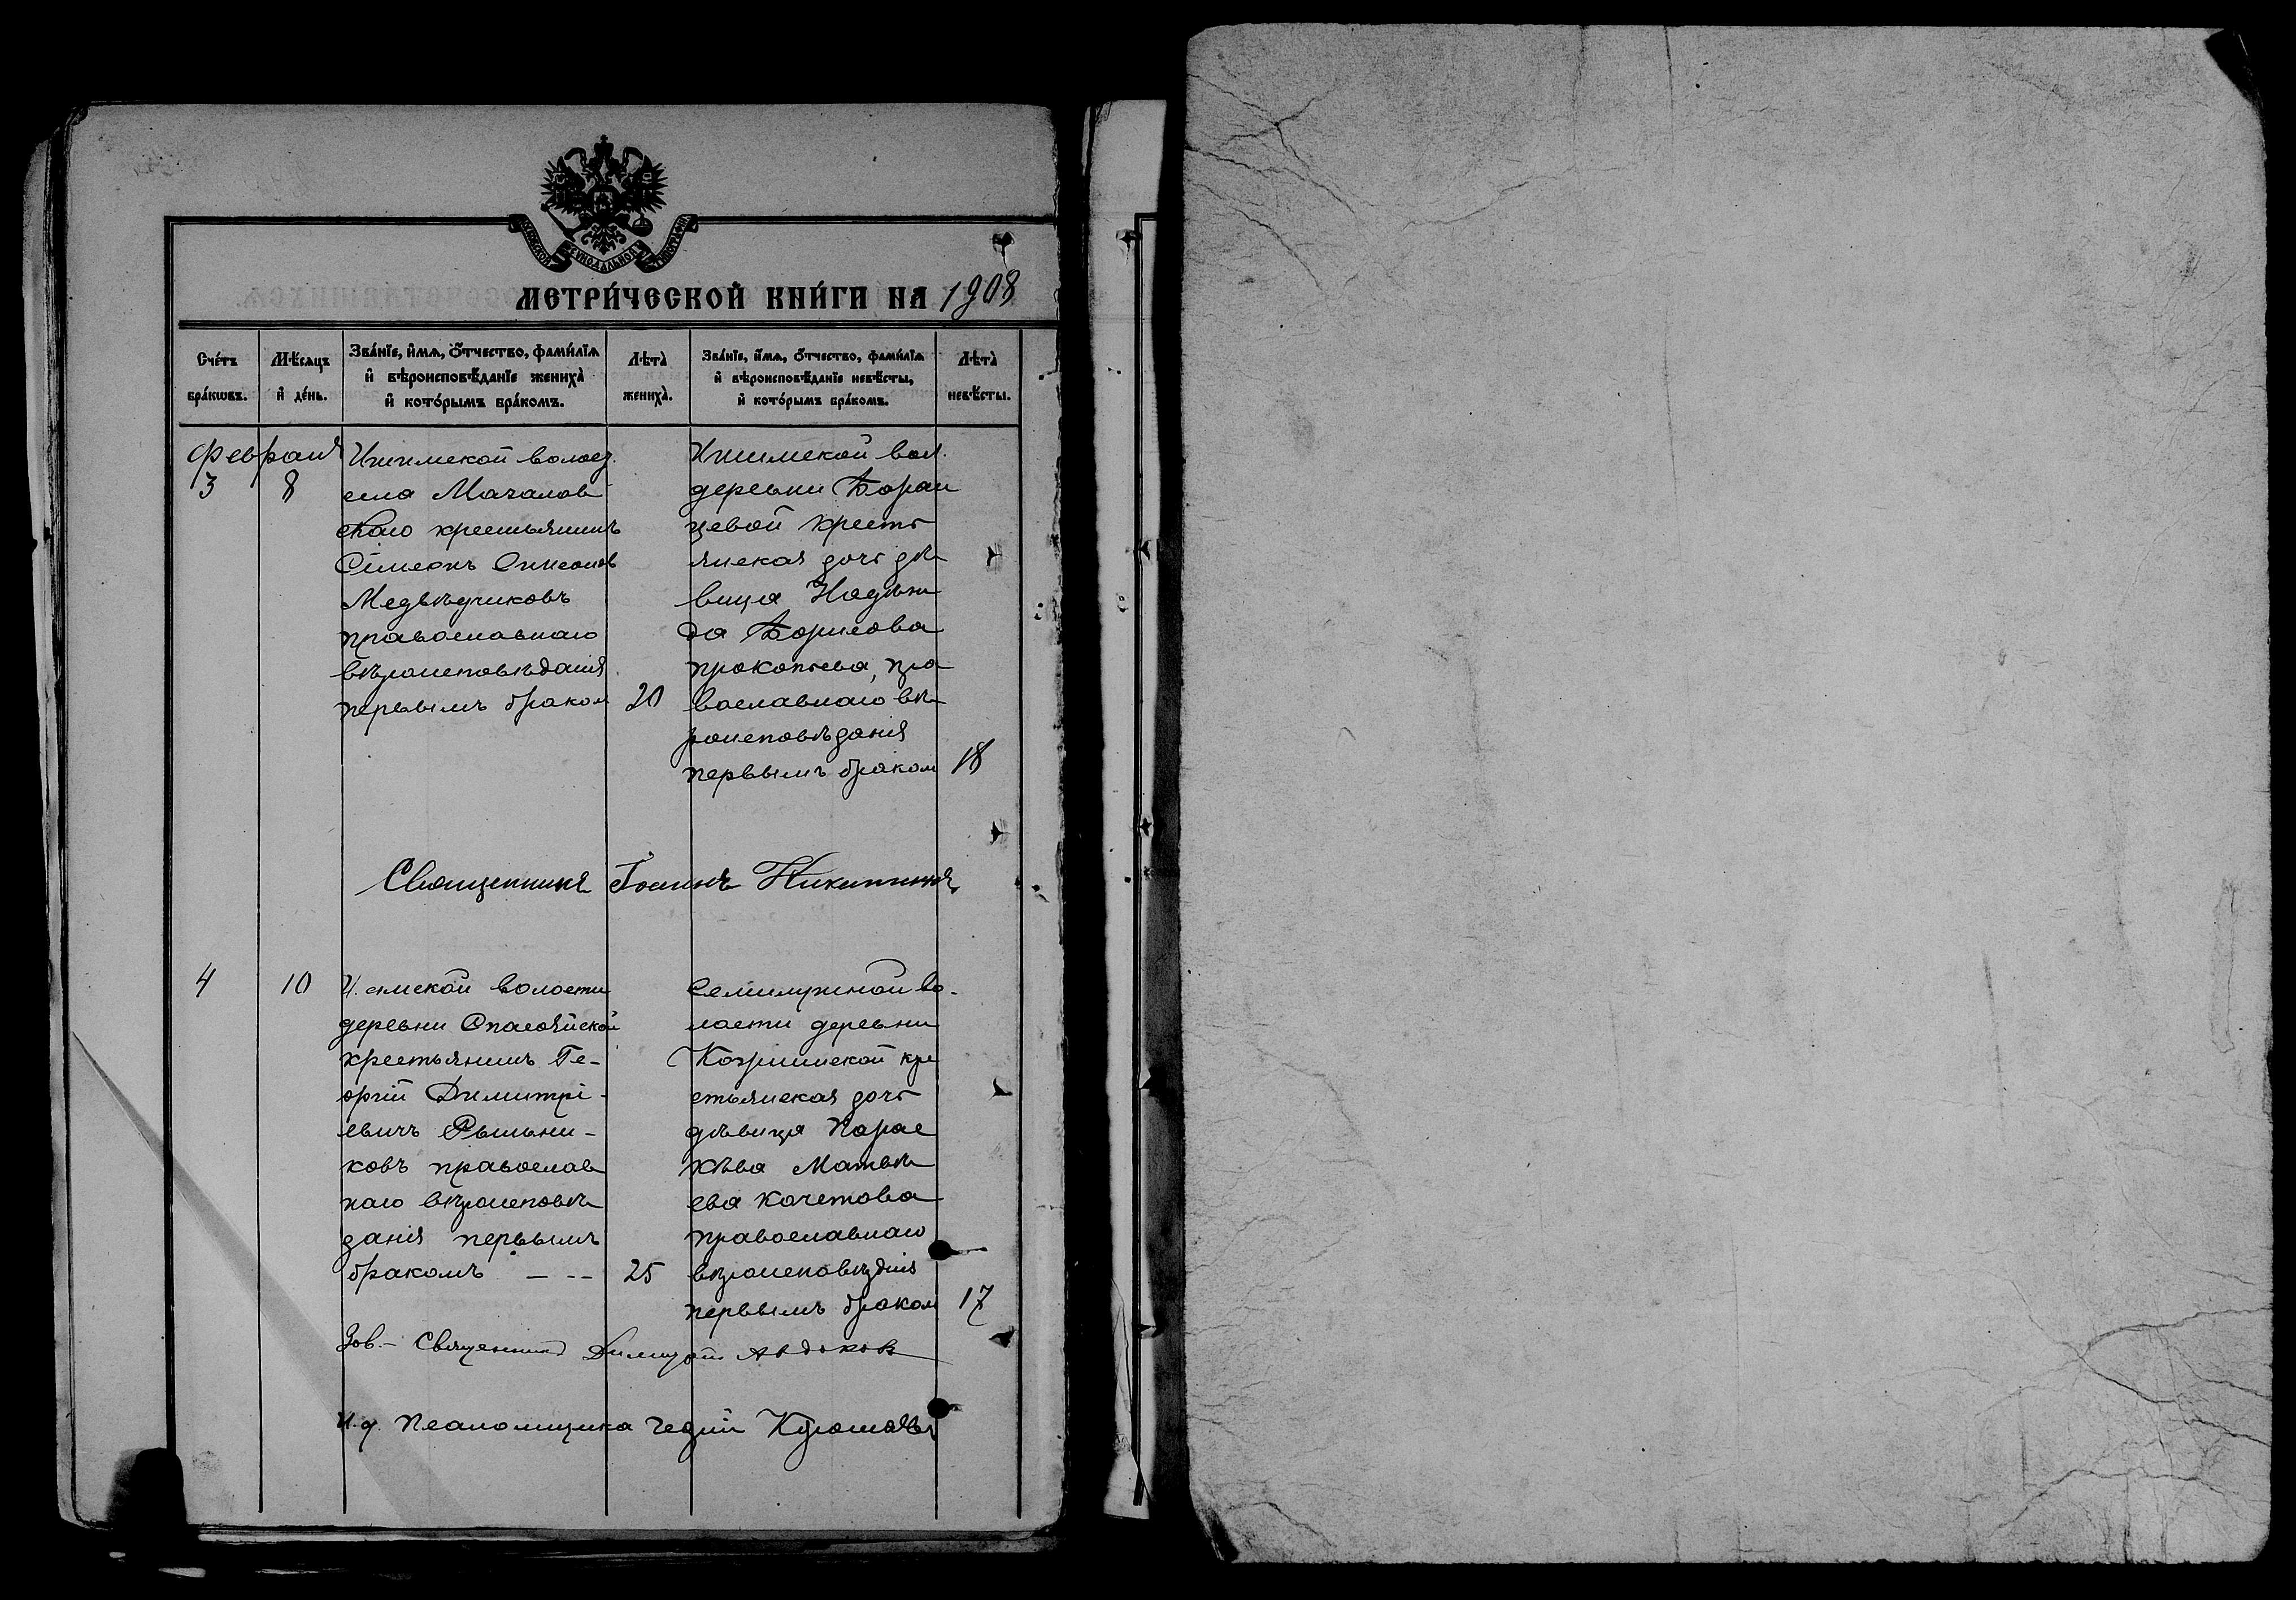 МОСКОВСКОЙ СѴНОДАЛЬНОЙ ТИПОГРАФІИ
МЕТРИ́ЧЕСКОЙ КНИ́ГИ НА 1908
Сче́тъ бра́кωвъ.
Мѣ́сяцъ и҆ де́нь.
Зва́нїе, и҆́мѧ, ѻ҆́тчество, фами́лїѧ и҆ вѣроисповѣ́данїе жениха̀ и҆ кото́рымъ бра́комъ.
Лѣта̀ жениха̀.
Зва́нїе, и҆́мѧ, ѻ҆́тчество, фами́лїѧ и҆ вѣроисповѣ́данїе невѣ́сты, и҆ кото́рымъ бра́комъ.
Лѣта̀ невѣ́сты.
Февраля
3
8
Ишимской волост.
села Мачалов
скаго крестьянинъ
Сімеонъ Симеонов
Медвѣдчиковъ
православнаго
вѣроисповѣданія
первымъ браком
20
Ишимской вол.
деревни Боран
цевой кресть
янская дочь дѣ
вица Надеж
да Борисова
Прокопьева, пра
вославнаго вѣ
роисповѣданія
первымъ браком
18
Священникъ Іоаннъ Никитинъ
4
10
волости
деревни Спасояйской
крестьянинъ Ге-
оргій Димитрі-
евичъ
ковъ православ
наго вѣроисповѣ
данія первымъ
бракомъ — --
25
Семилужной во-
лости деревни
кре
стьянская дочь
дѣвица Парас
кѣва Матвѣ
ева Кочетова
православнаго
первымъ браком
17
Зав.- Священник Димитрій Авдаков
И.д. Псаломщика